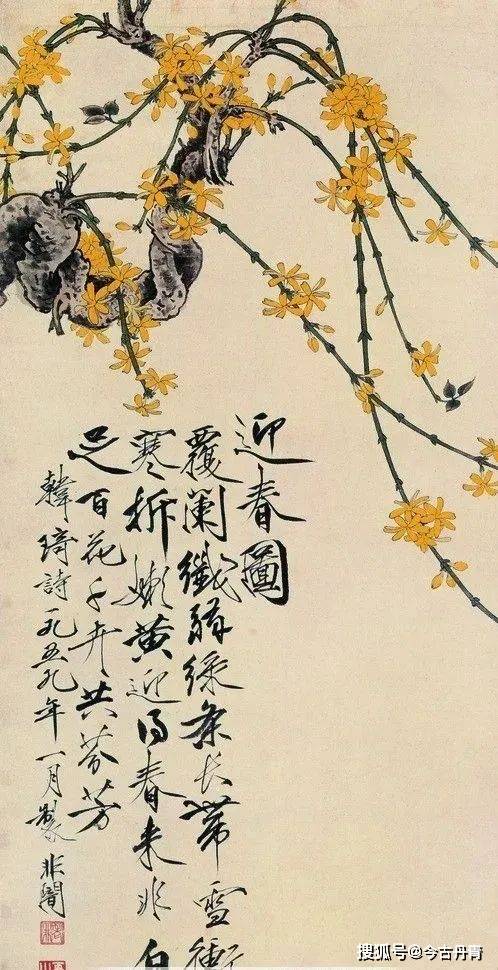 迎春圖
覆闌纖弱綠条长帶雪衝
寒拆嫩黄迎得春来非自
足百花千卉共芬芳
韓琦詩一九五九年一月製非闇
搜狐号@今古丹青